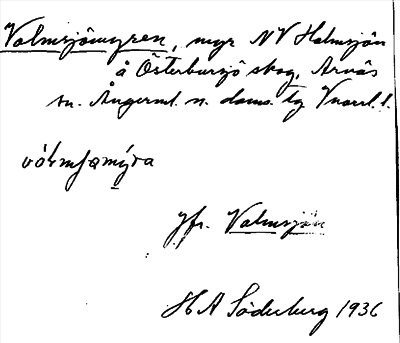 Valmsjömyren, myr NV Holmsjön
å Österbursjö skog, Arnäs
sn. Ångerml. n. doms. tg
vål̀mʃømýra
jfr. Valmsjön
H A Söderberg 1936